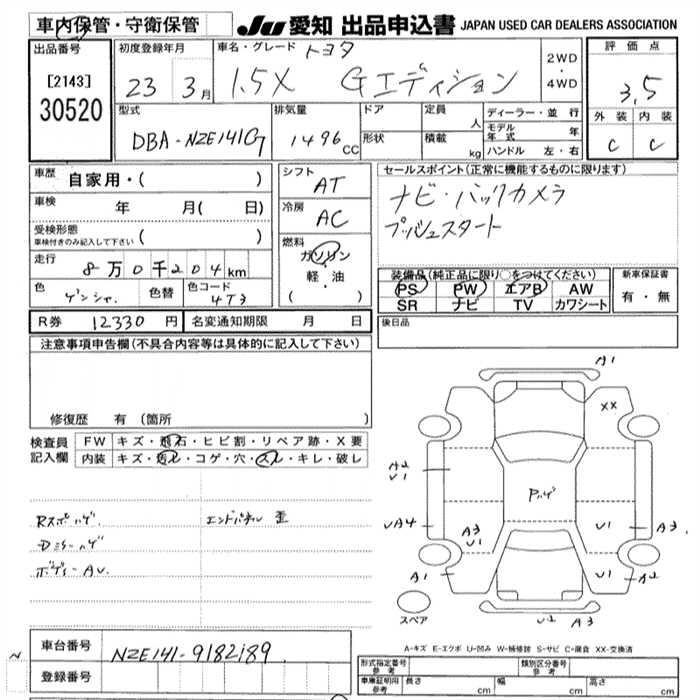 車内保管・守衛保管 JU 愛知 出品申込書 JAPAN USED CAR DEALERS ASSOCIATION
出品番号 初度登録年月 車名・グレード トヨタ 2WD・4WD 評価点
[2143] 23 3月 1.5X Gエディション 3.5
30520 型式 排気量 ドア 定員 人 ディーラー・並行 外装 内装
DBA-NZE141G 1496CC 形状 積載 kg モデル年式 年 C C
ハンドル 左・右
車歴 自家用・( ) シフト AT セールスポイント(正常に機能するものに限ります)
車検 年 月( 日) 冷房 AC ナビ・バックカメラ
受検形態 車検付きのみ記入して下さい ( ) プッシュスタート
走行 8万0千204km 燃料 ガソリン 軽・油 ( )
色 ゲンシャ. 色替 色コード 4T3
装備品(純正品に限り○をつけてください) 新車保証書
PS PW エアB AW 有・無
SR ナビ TV カワシート
R券 12330円 名変通知期限 月 日 後日品
注意事項申告欄(不具合内容等は具体的に記入して下さい)
修復歴 有 (箇所 )
検査員記入欄 FW キズ・飛石・ヒビ割・リペア跡・X要
内装 キズ・汚レ・コゲ・穴・スレ・キレ・破レ
Rスポハゲ. エンドパネル 歪
Dミラーハゲ
ボディーAU.
A1
XX
A2
U1
Pハゲ
UA4 A3 U1 U1 A3
A1 U1 A2
スペア U2 A3
A-キズ E-エクボ U-凹ミ W-補修跡 S-サビ C-腐食 XX-交換済
車台番号 NZE141-9182189
登録番号
形式指定番号 参考 類別区分番号 参考
車庫証明用 参考 長さ cm 幅 cm 高さ cm